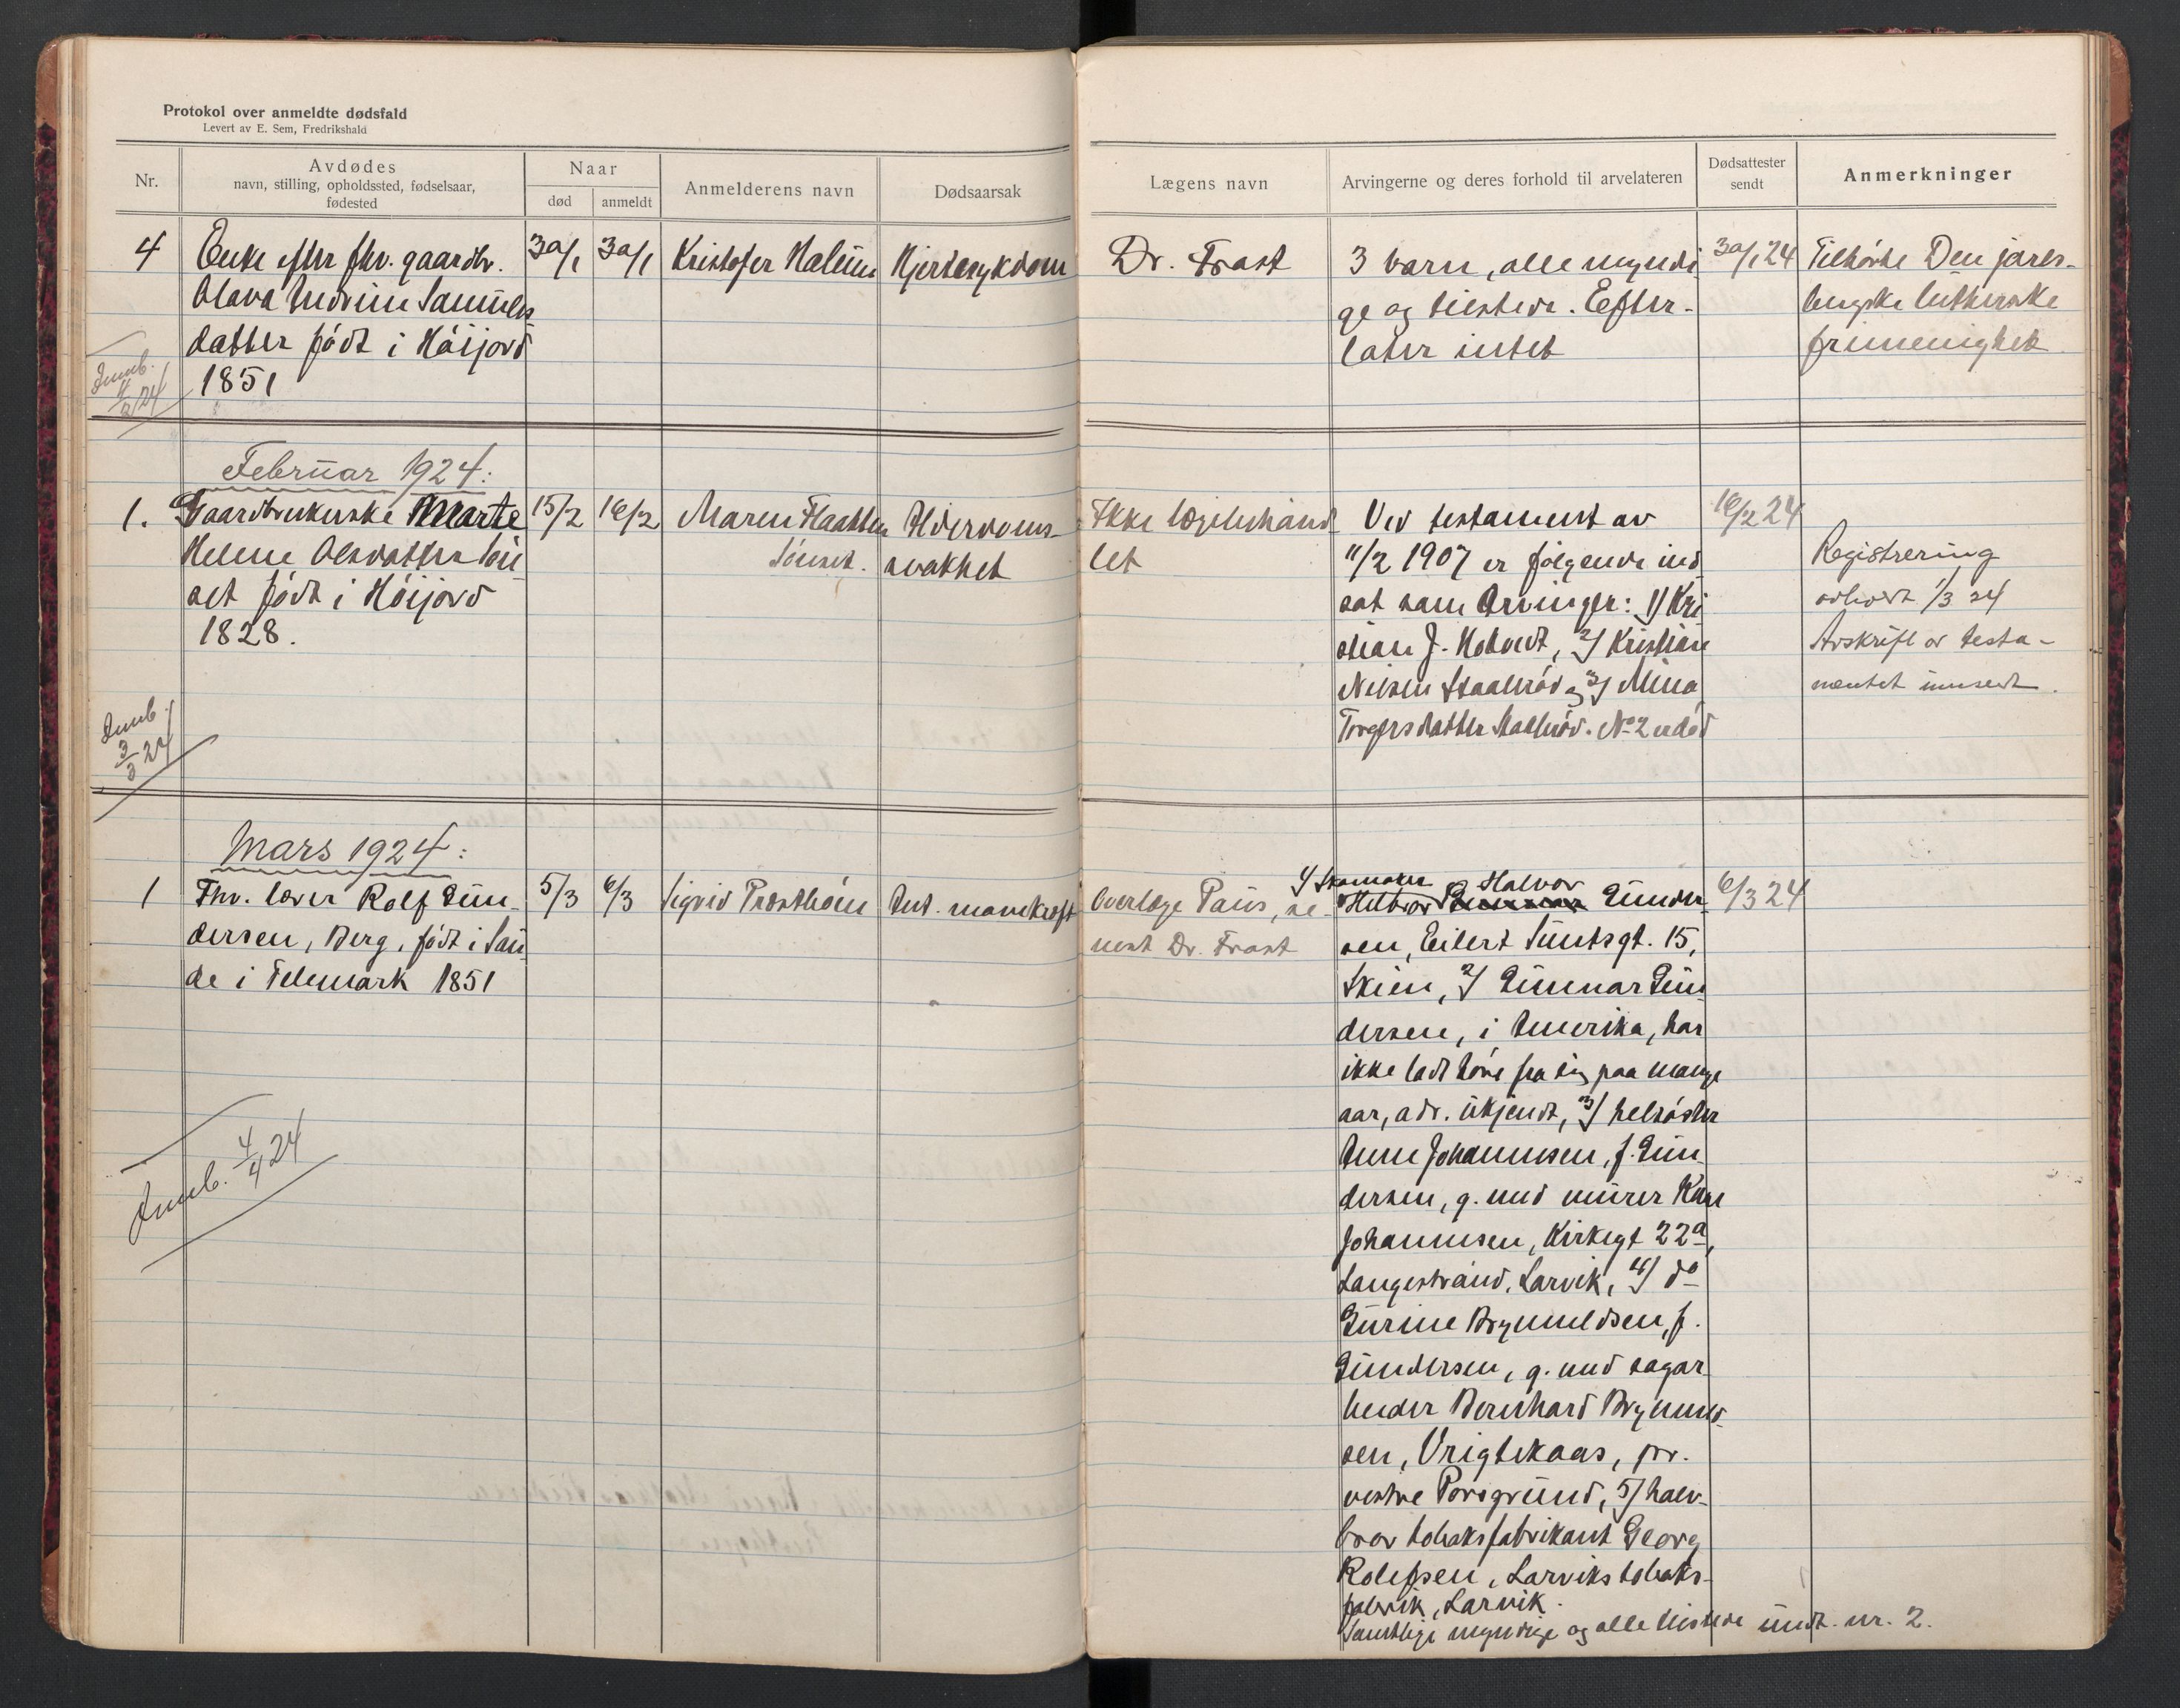 Protokol over anmeldte dødsfald
Levert av E. Sem, Fredrikshald
Nr.
Avdødes
navn, stilling, opholdssted, fødselsaar,
fødested
Naar
død
anmeldt
Anmelderens navn
Dødsaarsak
Lægens navn
Arvingerne og deres forhold til arvelateren
Dødsattester
sendt
Anmerkninger
4
Enke efter fhv. gaardbr.
Olava Andrine Samuels
datter født i Høijord
1851
30/1
30/1
Kristofer
Hjertesykdom
Dr. Frost
3 barn, alle myndi
ge og tilstede. Efter-
later intet
30/1 24
Tilhørte Den jarls-
bergske lutherske
frimenighet
Innb.
4/2 24
Februar 1924:
1.
Gaardbrukerske Marte
Helene Olsdatter Sön
set født i Höijord
1828.
15/2
16/2
Maren Flaatten
Sönset.
Alderdoms-
svakhet
Ikke lægebehand
let
Ved testament av
11/2 1907 er følgende ind
sat som Arvinger: 1/ Kri
stian J. Hotvedt, 2/ Kristian
Nilsen og 3/ Mina
Torgersdatter No 2 er død
16/2 24
Registrering
avholdt 1/3 24
Avskrift av testa-
mentet innsendt.
Innb.
3/3 24
Mars 1924:
1
Fhv. lærer Rolf Gün-
dersen, Berg, født i Sau
de i Telemark 1851
5/3
6/3
Sigrid
Ant. mavekræft
Overlæge Paus, se-
nest Dr. Frost
1/ Skomaker Halvor
Günder
sen, Eilert Suntsgt. 15,
Skien, 2/ Günnar Gün
dersen, i Amerika, har
ikke ladt høre fra sig paa mange
aar, adr. ukjendt, 3/ helsøster
Anne Johannesen, f. Gün
dersen, g. med mürer Karl
Johannesen, Kirkegt 22a,
Langestrand, Larvik, 4/ do
Gurine Brynildsen, f.
Gündersen, g. med sagar
beider Bernhard Brynild
sen, Vrigtskaas, pr.
vestre Porsgrund, 5/ halv-
bror tobaksfabrikant Georg
Rolfsen, Larviks tobaks-
fabrik, Larvik.
Samtlige myndige og alle tilstede undt. nr. 2.
6/3 24
Innb. 4/4 24